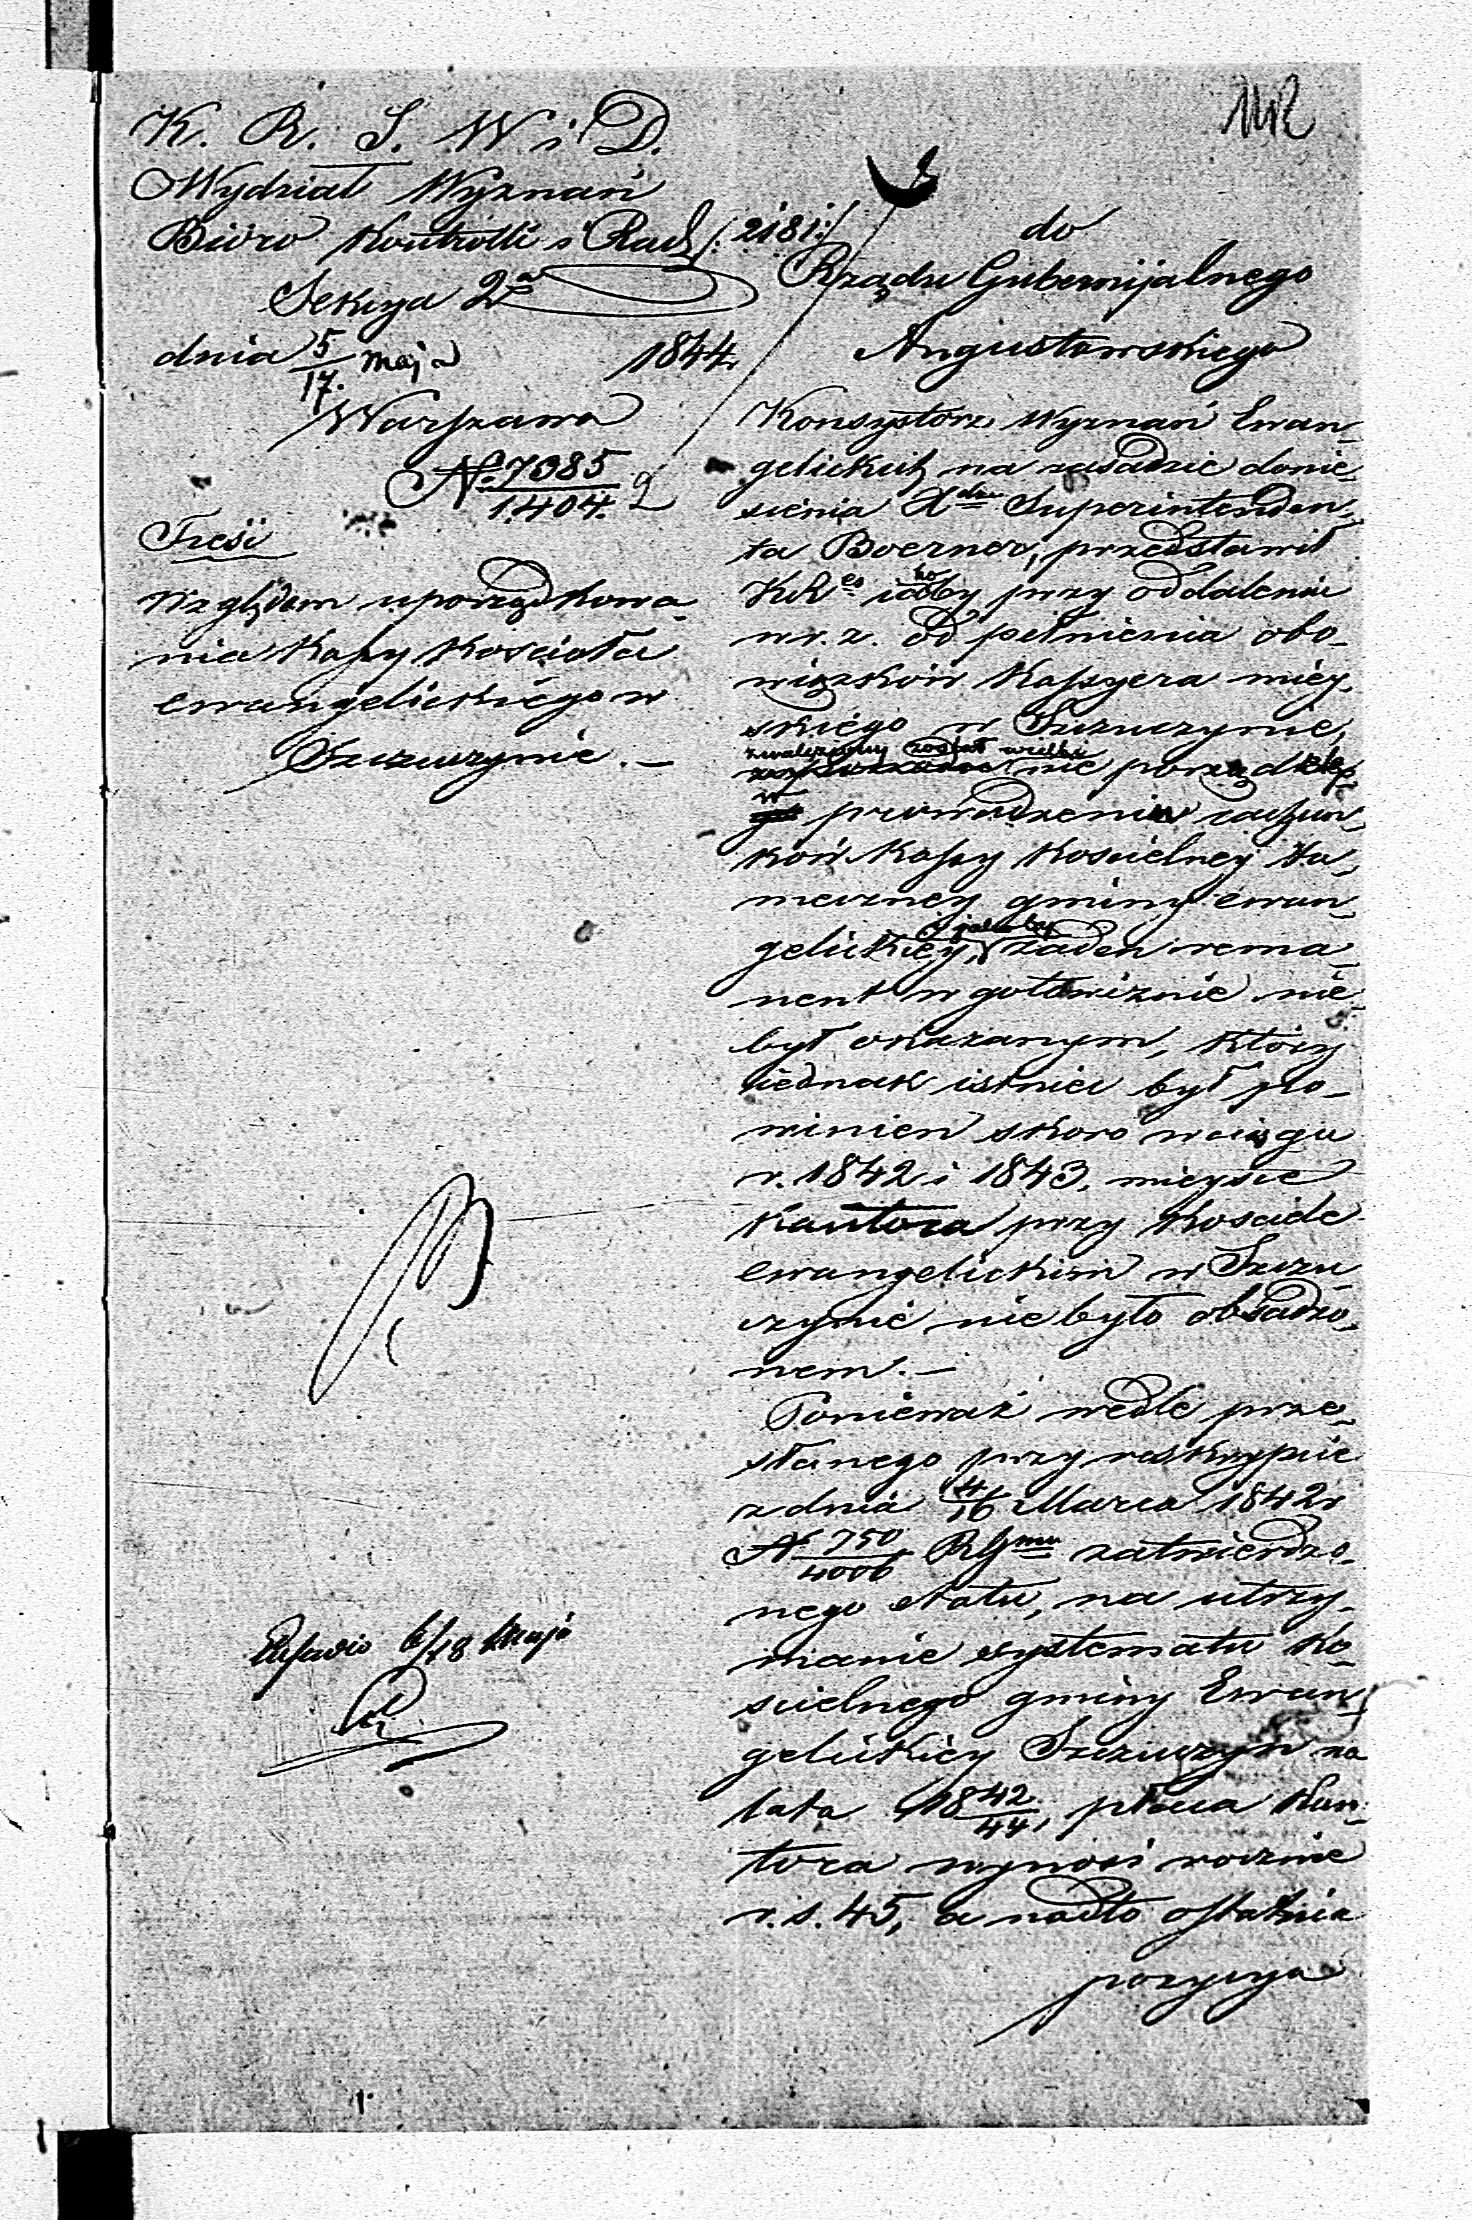 112
K. R. S. W. i D.
Wydział Wyznań
Biuro Kontrolli i Rach /: 2181 :/
Sekcya 2a
dnia 5/17. Maja 1844
Warszawa
No 7385/1404.
Treść
Względem uporządkowa-
nia Kassy Kościoła
ewangelickiego w
Szczuczynie. —
6/18 Maja
do
Rządu Gubernijalnego
Augustowskiego
Konsystorz Wyznań Ewan-
gelickich na zasadzie donie-
sienia Superintenden-
ta Boerner, przedstawił
przy oddaleniu
w r. z. od pełnienia obo-
wiązków Kassyera miey-
skiego w Szczuczynie,
został wielki
nie porządek
w prowadzeniu rachun-
ków Kassy Kościelney ta-
meczney gminy ewan-
gelickiey, i jakoby żaden rema-
nent w gotowiznie nie
był okazanym, który
iednak istnieć był po-
winien skoro w ciągu
r. 1842 i 1843. mieysce
Kantora przy Kościele
ewangelickim w Szczu-
czynie nie było obsadzo-
nem. —
Ponieważ wedle prze-
słanego przy reskrypcie
z dnia 4/16 Marca 1842 r
N 750/4006 RGmu zatwierdzo-
nego etatu, na utrzy-
manie systematu Ko-
scielnego gminy Ewan-
gelickiey Szczuczyn na
lata 1842/44, płaca Kan-
tora wynosi rocznie
r. s. 45, a nadto ostatnia
pozycya